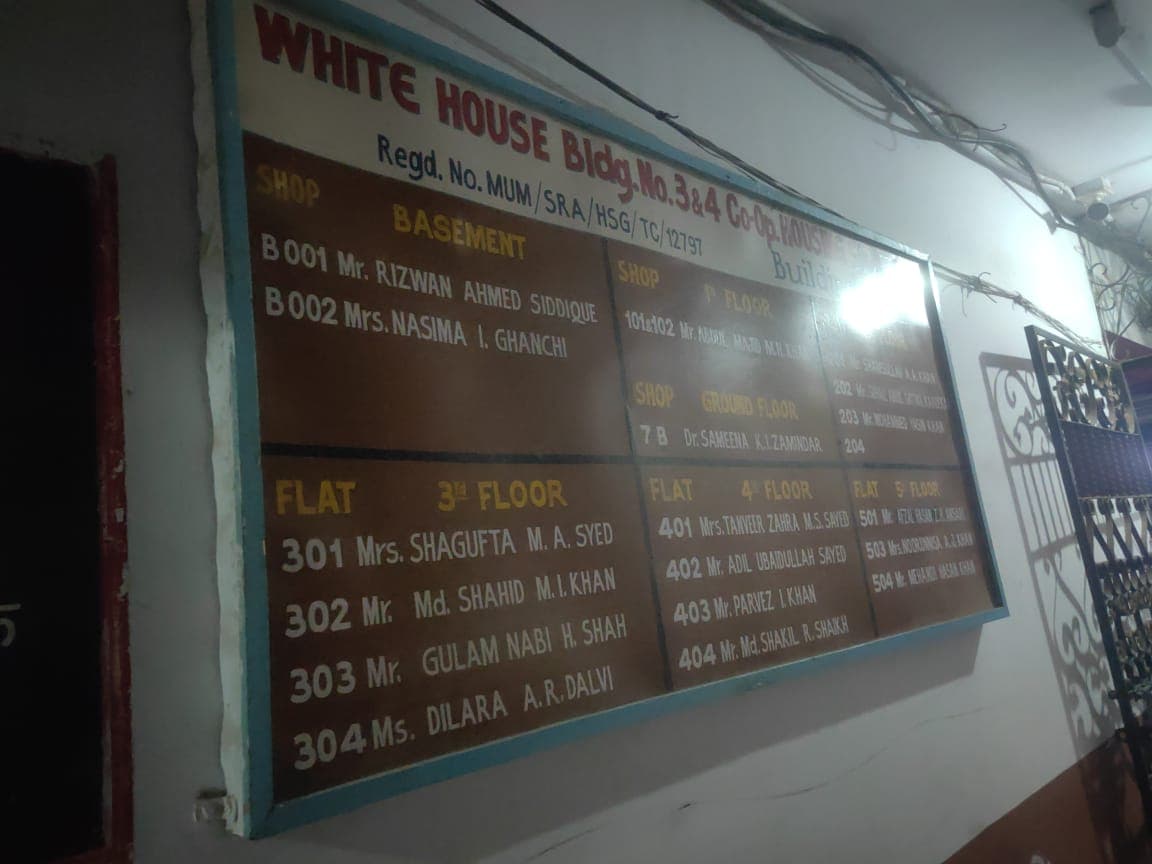 WHITE HOUSE Bldg.No.3&4 Co-Op. HOUS
Regd. No. MUM/SRA/HSG/TC/12797
SHOP BASEMENT
B001 Mr. RIZWAN AHMED SIDDIQUE
B002 Mrs. NASIMA I. GHANCHI
SHOP 1st FLOOR
101&102 Mr. ABDUL MAJID
SHOP GROUND FLOOR
7 B Dr. SAMEENA K.I. ZAMINDAR
A.A. KHAN
202
203 Mr. MOHAMMED YASIN KHAN
204
FLAT 3RD FLOOR
301 Mrs. SHAGUFTA M. A. SYED
302 Mr. Md. SHAHID M. I. KHAN
303 Mr. GULAM NABI H. SHAH
304 Ms. DILARA A. R. DALVI
FLAT 4th FLOOR
401 Mrs. TANVEER ZAHRA M.S. SAYED
402 Mr. ADIL UBAIDULLAH SAYED
403 Mr. PARVEZ I. KHAN
404 Mr. Md. SHAKIL R. SHAIKH
FLAT 5th FLOOR
501 Mr. AFZAL HASAN
503 Mrs. NOORUNNISA A. J. KHAN
504 Mr. MEHANDI HASAN KHAN